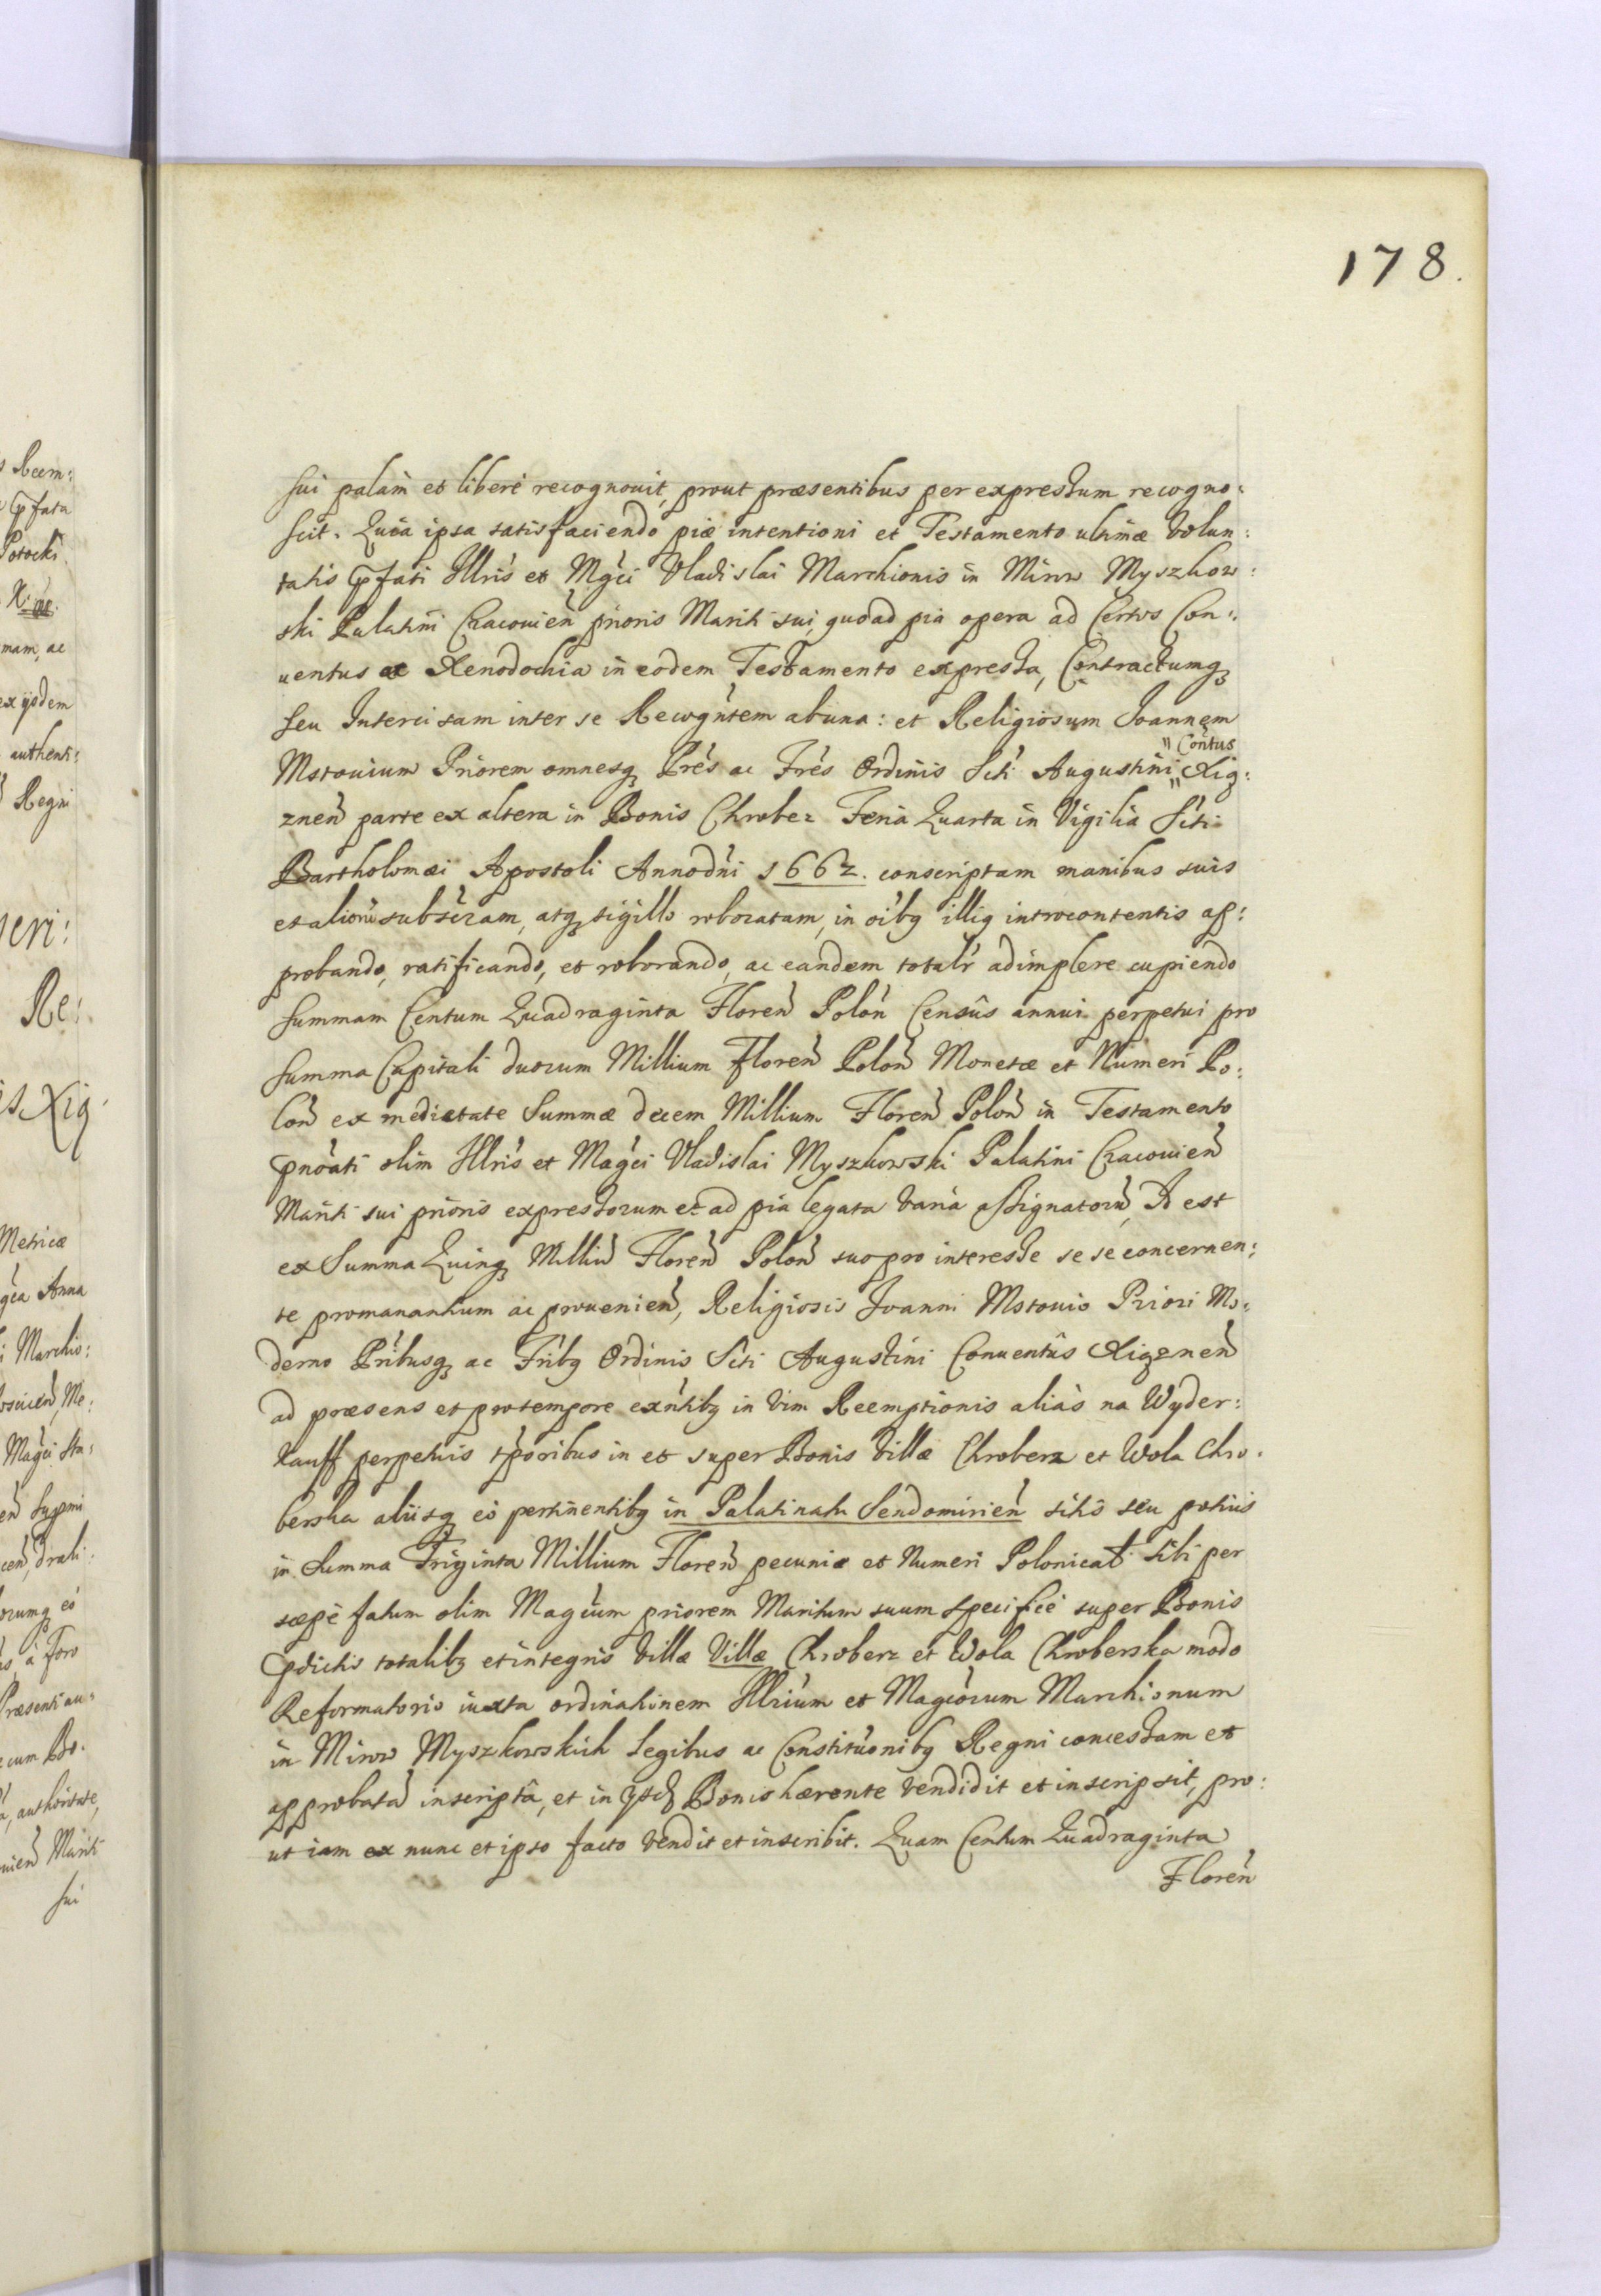 178.
sui palam et liberè recognouit, prout præsentibus per expressum recogno:
scit. Quia ipsa satisfaciendo piæ intentioni et Testamento ultimæ volun:
tatis pfati Illris et Mgci Vladislai Marchionis in Mirow Myszkow:
ski Palatini Cracouien prioris Mariti sui, quoad pia opera ad Certos Con:
uentus et Xenodochia in eodem Testamento expressa, Contractumq
seu Intercisam inter se Recogntem ab una: et Religiosum Joannem
Mstouium Priorem omnesq Pres ac Fres Ordinis Scti Augustini " Contus " Xig:
znen parte ex altera in Bonis Chrober Feria Quarta in Vigilia Scti
Bartholomæi Apostoli Anno dni 1662. conscriptam manibus suis
et aliorū subscram, atq sigillo roboratam, in oibq illiq introcontentis ap:
probando, ratificando, et roborando, ac eandem totalr adimplere cupiendo
summam Centum Quadraginta Floren Polon Censûs annui perpetui pro
summa Capitali duorum Millium Floren Polon Monetæ et Numeri Po:
lon ex medietate Summæ decem Millium Floren Polon in Testamento
pnoati olim Illris et Magci Vladislai Myszkowski Palatini Cracouien
Mariti sui prioris expressorum et ad pia legata varia assignatorū, Id est
ex Summa Quinq Milliū Floren Polon suo pro interesse se se concernen:
te promanantium ac prouenien, Religiosis Joanni Mstouio Priori Mo:
derno Pribusq ac Fribq Ordinis Scti Augustini Conuentûs Xigznen
ad præsens et pro tempore exntibq in vim Reemptionis aliàs na Wyder:
kauff perpetuis tporibus in et super Bonis Villæ Chroberz et Wola Chro:
berska aliisq eò pertinentibq in Palatinatu Sendomirien sitis seu potius
in Summa Triginta Millium Floren pecuniæ et Numeri Polonicał sibi per
sæpè fatum olim Magcum priorem Maritum suum specificè super Bonis
pdictis totalibq et integris Villæ Villæ Chroberz et Wola Chroberska modo
Reformatorio iuxta ordinationem Illrium et Magcorum Marchionum
in Mirow Myszkowskich Legibus ac Constituonibq Regni concessam et
approbatā inscriptâ, et in Bonis hærente vendidit et inscripsit, pro:
ut iam ex nunc et ipso facto vendit et inscribit. Quam Centum Quadraginta
Floren